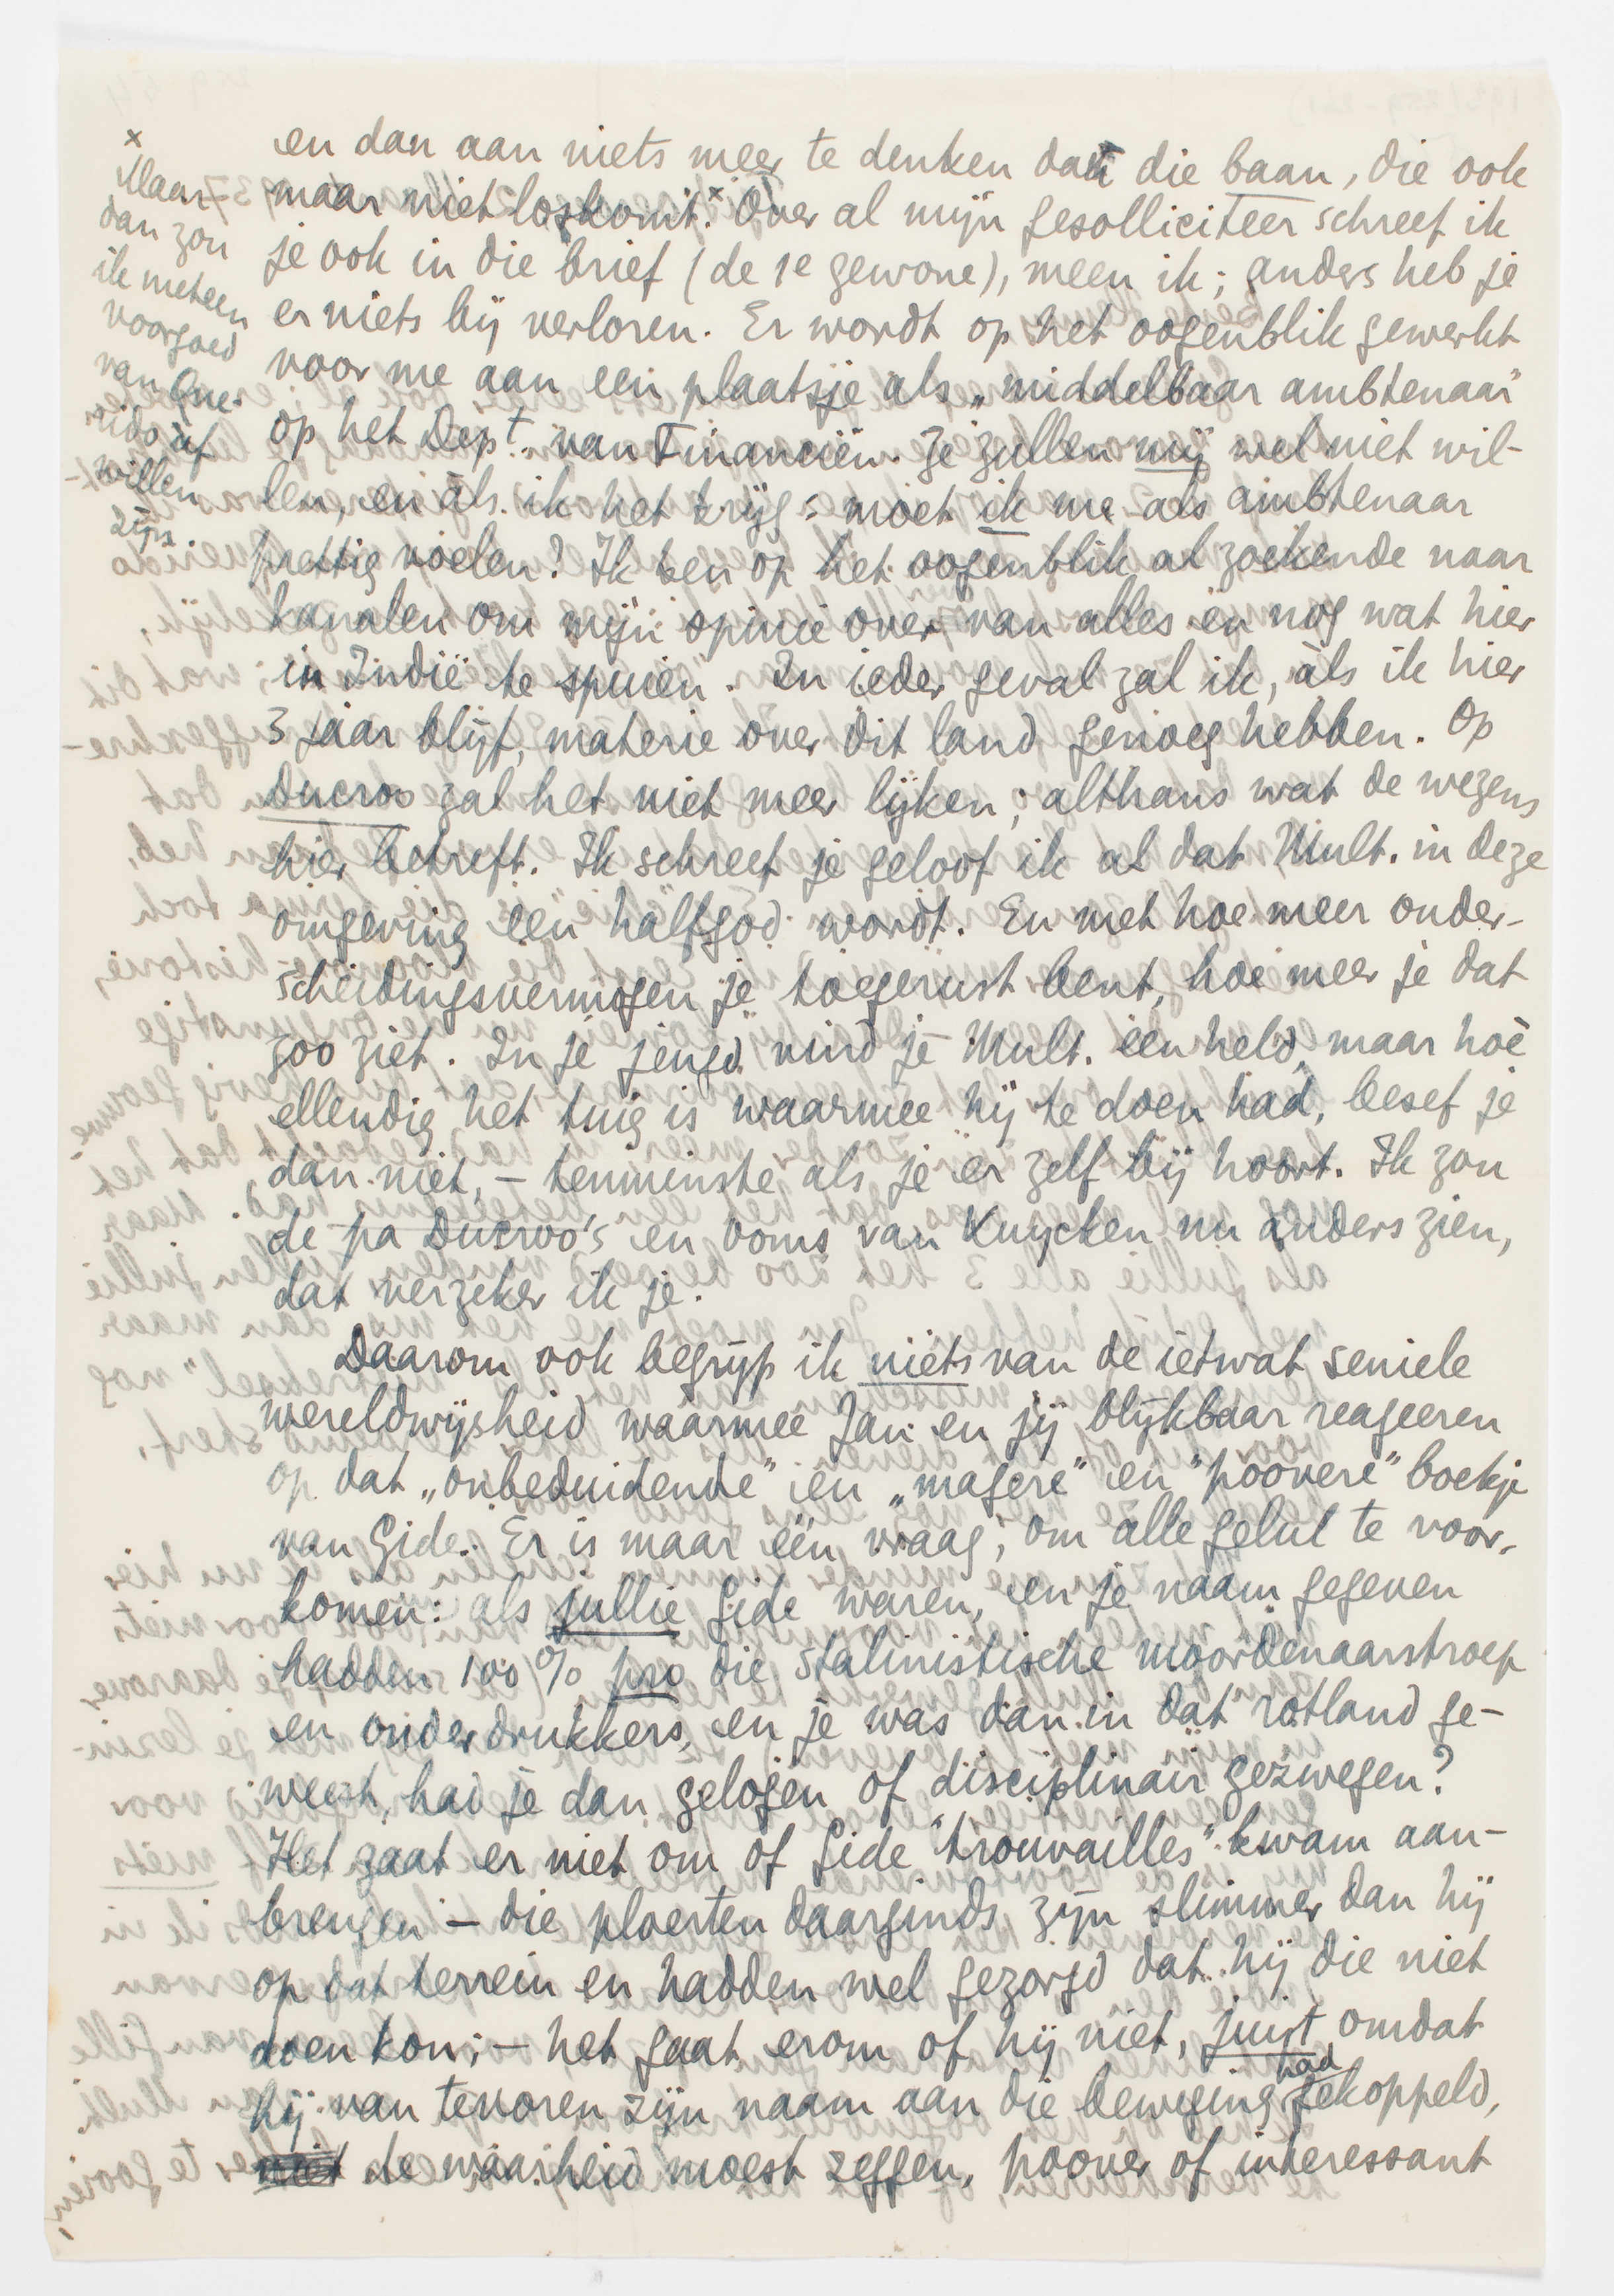 en dan aan niets meer te denken dan die baan, die ook
maar niet loskomt.x Over al mijn gesolliciteer schreef ik
je ook in die brief (de 1e gewone), meen ik; anders heb je
er niets bij verloren. Er wordt op het oogenblik gewerkt
voor me aan een plaatsje als „middelbaar ambtenaar"
op het Dept. van Financiën. Ze zullen mij wel niet wil-
len, en àls ik het krijg: moet ik me als ambtenaar
prettig voelen? Ik ben op het oogenblik al zoekende naar
kanalen om mijn opinie over van alles en nog wat hier
in Indië te spuien. In ieder geval zal ik, àls ik hier
3 jaar blijf, materie over dit land genoeg hebben. Op
Ducroo zal het niet meer lijken; althans wat de wezens
hier betreft. Ik schreef je geloof ik al dat Mult. in deze
omgeving een halfgod wordt. En met hoe meer onder-
scheidingsvermogen je toegerust bent, hoe meer je dat
zoo ziet. In je jeugd vind je Mult. een held, maar hoè
ellendig het tuig is waarmee hij te doen had, besef je
dan niet, – tenminste als je er zelf bij hoort. Ik zou
de pa Ducroo's en ooms van Kuyck en nu anders zien,
dat verzeker ik je.
Daarom ook begrijp ik niets van de ietwat seniele
wereldwijsheid waarmee Jan en jij blijkbaar reageeren
op dat „onbeduidende" en „magere" en "poovere" boekje
van Gide. Er is maar één vraag, om alle gelul te voor-
komen: als jullie Gide waren, en je naam gegeven
hadden 100% pro die stalinistische moordenaarstroep
en onderdrukkers, en je was dan in dat rotland ge-
weest, had je dan gelogen of disciplinair gezwegen?
Het gaat er niet om of Gide "trouvailles" kwam aan-
brengen – die ploerten daarginds zijn slimmer dan hij
op dat terrein en hadden wel gezorgd dat hij die niet
doen kon; – het gaat erom of hij niet, juist omdat
hij van tevoren zijn naam aan die beweging had gekoppeld,
niet de waarheid moest zeggen, poover of interessant
x
Maar
dan zou
ik meteen
voorgoed
van Que-
rido af
willen
zijn.